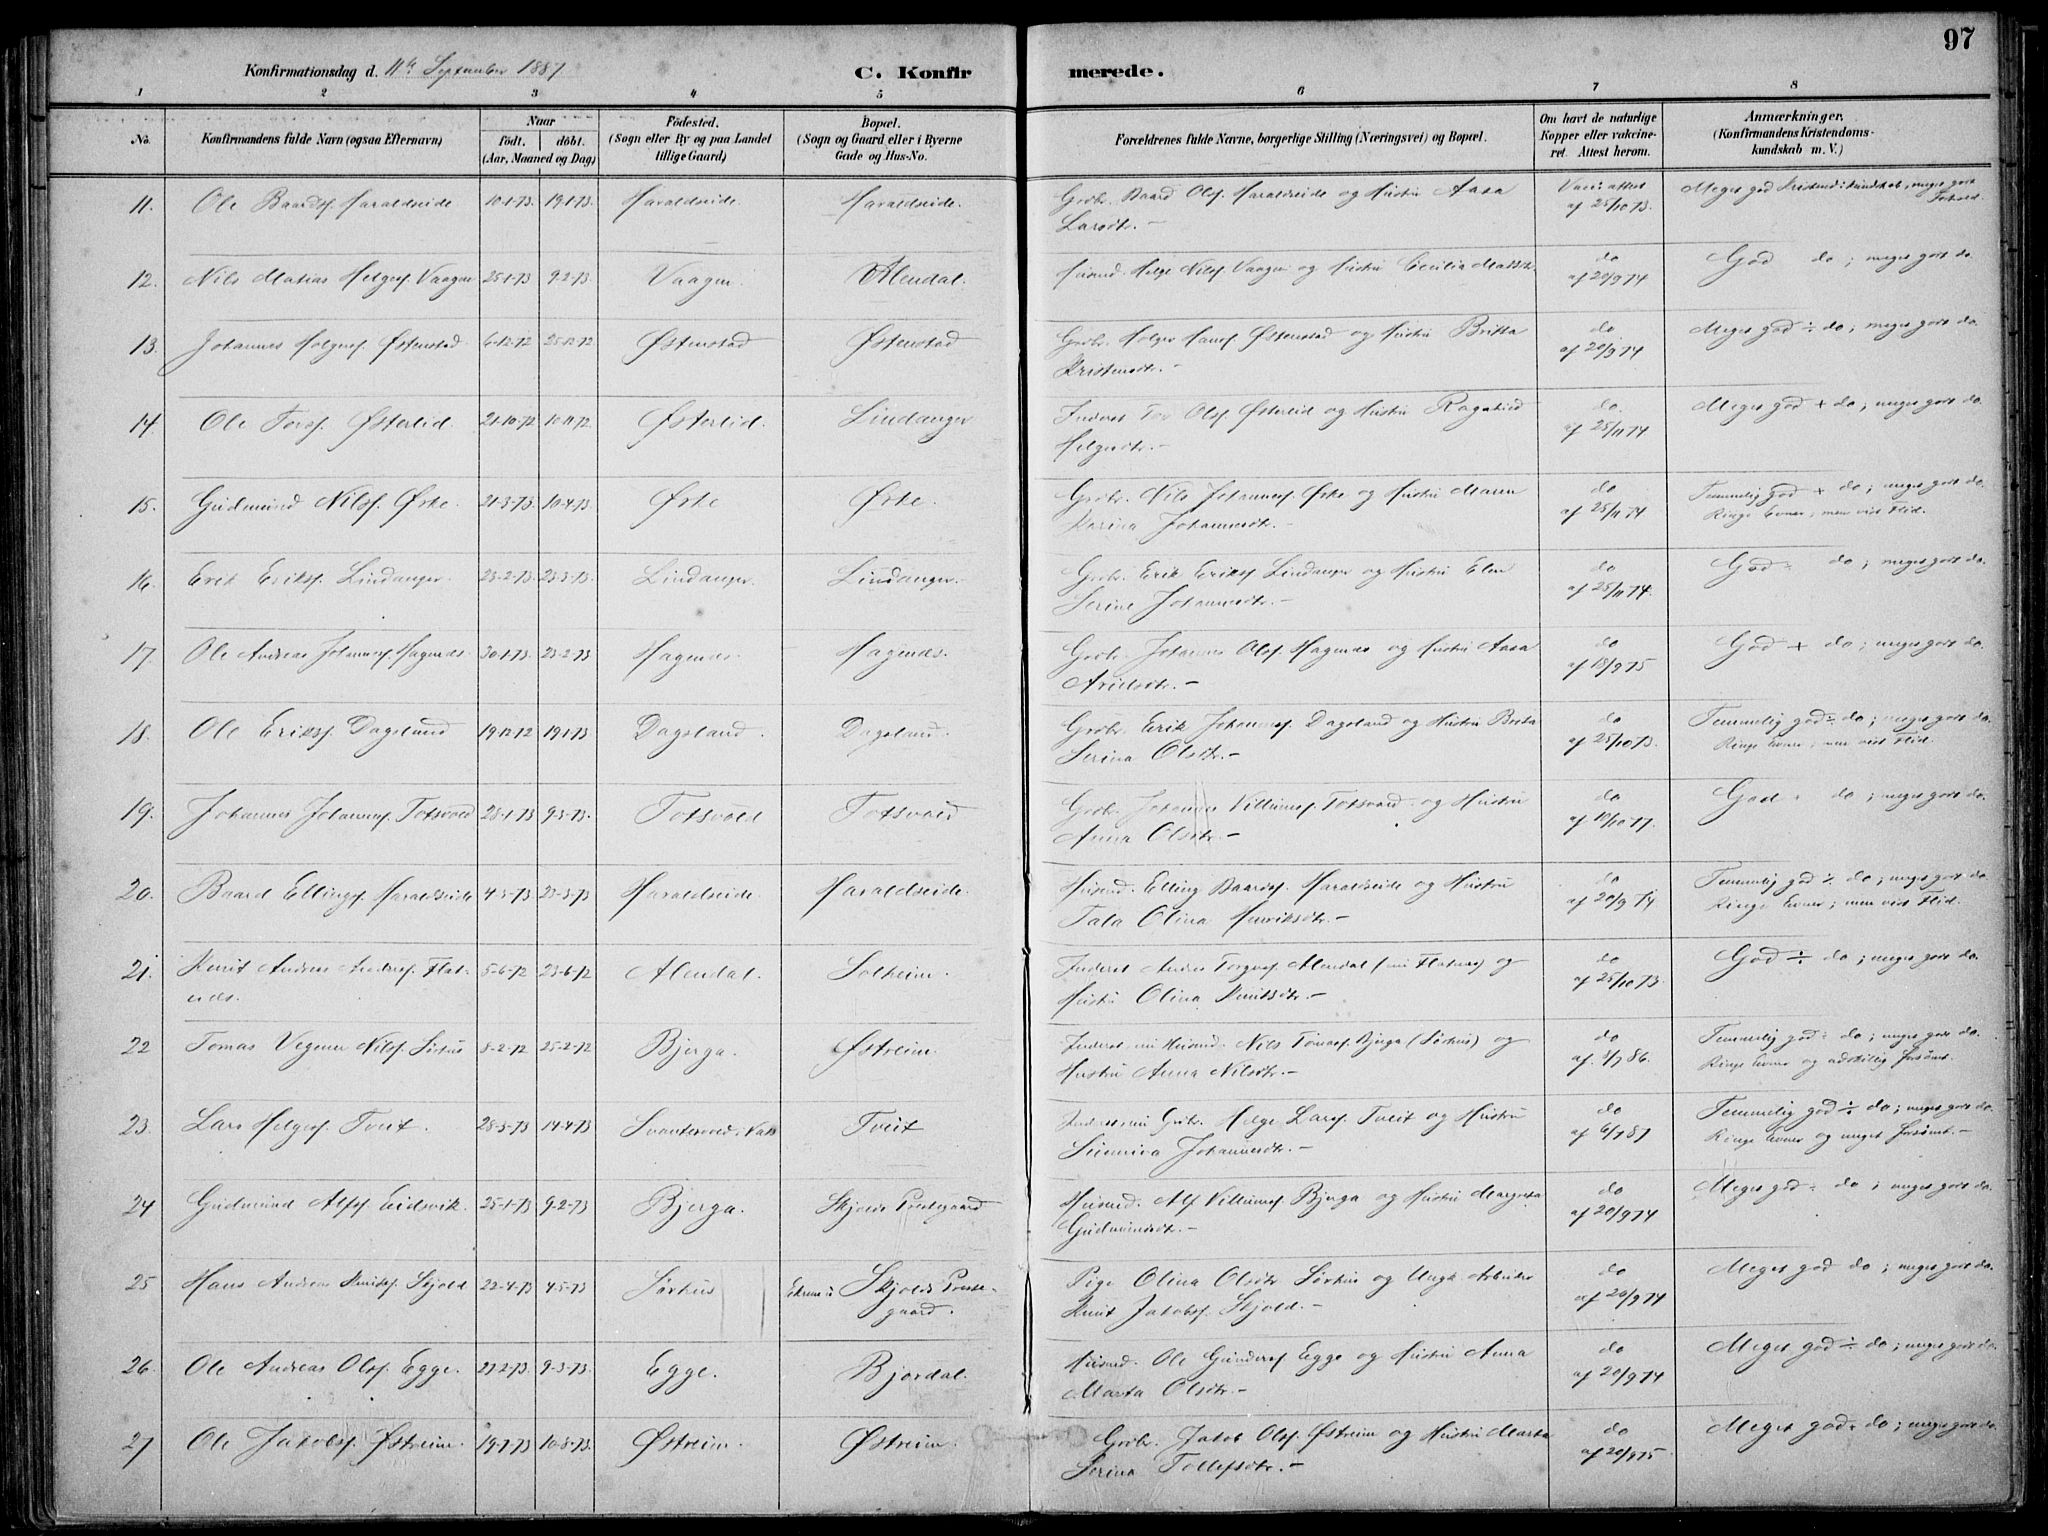 97
Konfirmationsdag d. 11te September 1887
C. Konfirmerede.
1 2 3 4 5 6 7 8
No.
Konfirmandens fulde Navn (ogsaa Efternavn)
Naar
født. døbt.
(Aar, Maaned og Dag)
Fødested.
(Sogn eller By og paa Landet
tillige Gaard)
Bopæl.
(Sogn og Gaard eller i Byerne
Gade og Hus-No.
Forældrenes fulde Navne, borgerlige Stilling (Næringsvei) og Bopæl.
Om havt de naturlige
Kopper eller vakcine-
ret. Attest herom.
Anmærkninger.
(Konfirmandens Kristendoms-
kundskab m. V.)
11. Ole Baardsf. Haraldseide 10-1-73. 19-1-73. Haraldseide. Haraldseide. Grdbr. Baard Olsf. Haraldseide og Hustru Aasa Vacc: attest Meget god Kristend: kundskab, meget godt
Larsdtr. – af 25/10 73. Forhold.
12. Nils Matias Helgesf. Vaagen 25-1-73 9-2-73. Vaagen. Alendal. Husmd. Helge Nilsf. Vaagen og Hustru Cecilia do God do; meget godt do.
af 20/9 74
13. Johannes Holgersf. Østenstad 6-12-72 25-12-72 Østenstad Østenstad Grdbr. Holger Hansf. Østenstad og Hustru Britta do Meget god ÷ do; meget godt do.
Kristensdtr. – af 20/9 74
14. Ole Torsf. Østerlid 21-10-72 10-11-72. Østerlid. Lindanger Inderst Tor Olsf. Østerlid og Hustru Ragnhild do. Meget god + do; meget godt do.
Helgesdtr. – af 25/11 74
15. Gudmund Nilsf. Ørke. 21-3-73. 10-4-73 Ørke Ørke. Grdbr. Nils Johannesf. Ørke og Hustru Maren do Temmelig god + do; meget godt do.
Karina Johannesdtr. – af 25/11 74 Ringe Evner, men vist Flid.
16. Erik Eriksf. Lindanger. 23-2-73. 23-3-73. Lindanger. Lindanger. Grdbr. Erik Eriksf. Lindanger og Hustru Elen do God do; meget godt do.
Serine Johannesdtr. – af 25/11 74.
17. Ole Andreas Johannesf. Hagenæs. 30-1-73. 23-2-73 Hagenæs. Hagenæs. Grdbr. Johannes Olsf. Hagenæs og Hustru Aasa do God + do; meget godt do.
Arvidsdtr. – af 18/9 75
18. Ole Eriksf. Dagsland 19-12-72 19-1-73. Dagsland. Dagsland. Grdbr. Erik Johannesf. Dagsland og Hustru Berta do Temmelig god ÷ do; meget godt do.
Serina Olsdtr. – af 25/10 73. Ringe Evner, men vist Flid.
19. Johannes Johannesf. Totsvold 28-1-73 9-3-73. Totsvold Totsvold Grdbr. Johannes Villumsf. Totsvold og Hustru do God do; meget godt do.
Anna Olsdtr. – af 10/10 77.
20. Baard Ellingsf. Haraldseide 4-3-73 23-3-73 Haraldseide. Haraldseide. Husmd. Elling Baardsf. Haraldseide og Hustru do Temmelig god ÷ do; meget godt do.
Tala Olina Henriksdtr. – af 20/9 74 Ringe Evner; men vist Flid.
21. Knut Andreas Andersf. Flat- 5-6-72 23-6-72 Alendal. Solheim. Inderst Anders Torgersf. Alendal og do God ÷ do; meget godt do.
næs. Hustru Olina Knutsdtr. – af 25/10 73.
22 Tomas Vegener Nilsf. Sørhus 8-2-72 25-2-72 Bjerga. Østreim. Inderst, nu Husmd. Nils Tomasf. Bjerga (Sørhus) og do Temmelig god do; meget godt do.
Hustru Anna Nilsdtr. – af. 3/7 86. Ringe Evner og adskillig Forsømt.
23. Lars Helgesf. Tveit. 28-3-73 14-4-73 Tveit Inderst, nu Grdbr. Helge Larsf. Tveit og Hustru do Temmelig god ÷ do; meget godt do.
Sunniva Johannesdtr. – af 6/7 87 Ringe Evner og meget Forsømt. –
24 Gudmund Alfsf. Eidsvik. 25-1-73 9-2-73 Bjerga. Skjolds Prestegaard Husmd. Alf Villumsf. Bjerga og Hustru Margreta do Meget god do; meget godt do.
Gudmundsdtr. – af 20/9 74
25 Hans Andreas Knutsf. Skjold 22-4-73 4-5-73 Sørhus Skjolds Preste- Pige Olina Olsdtr Sørhus og Ungk. Arbeider do Meget god do; meget godt do.
gaard. Knut Jakobsf. Skjold. – af 20/9 74
26. Ole Andreas Olsf. Egge. 27-2-73. 9-3-73. Egge. Bjordal. Husmd. Ole Gundersf. Egge og Hustru Anna do Meget god ÷ do; meget godt do.
Marta Olsdtr. – af 20/9 74
27 Ole Jakobsf. Østreim. 19-7-73 10-8-73. Østreim. Østreim. Grdbr. Jakob Olsf. Østreim og Hustru Marta do Meget god do; meget godt do.
Serina Tollefsdtr. – af 20/9 75